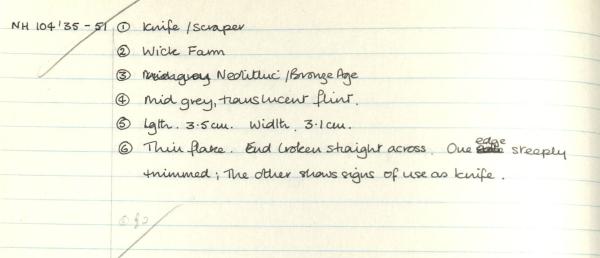 NH 104'35-51 ① Knife/Scraper
② Wick Farm
③ Neolithic/Bronze Age
④ Mid grey, translucent flint.
⑤ Lgth. 3.5cm. Width. 3.1cm.
⑥ Thin flake. End broken straight across. One edge steeply
trimmed; The other shows signs of use as knife.